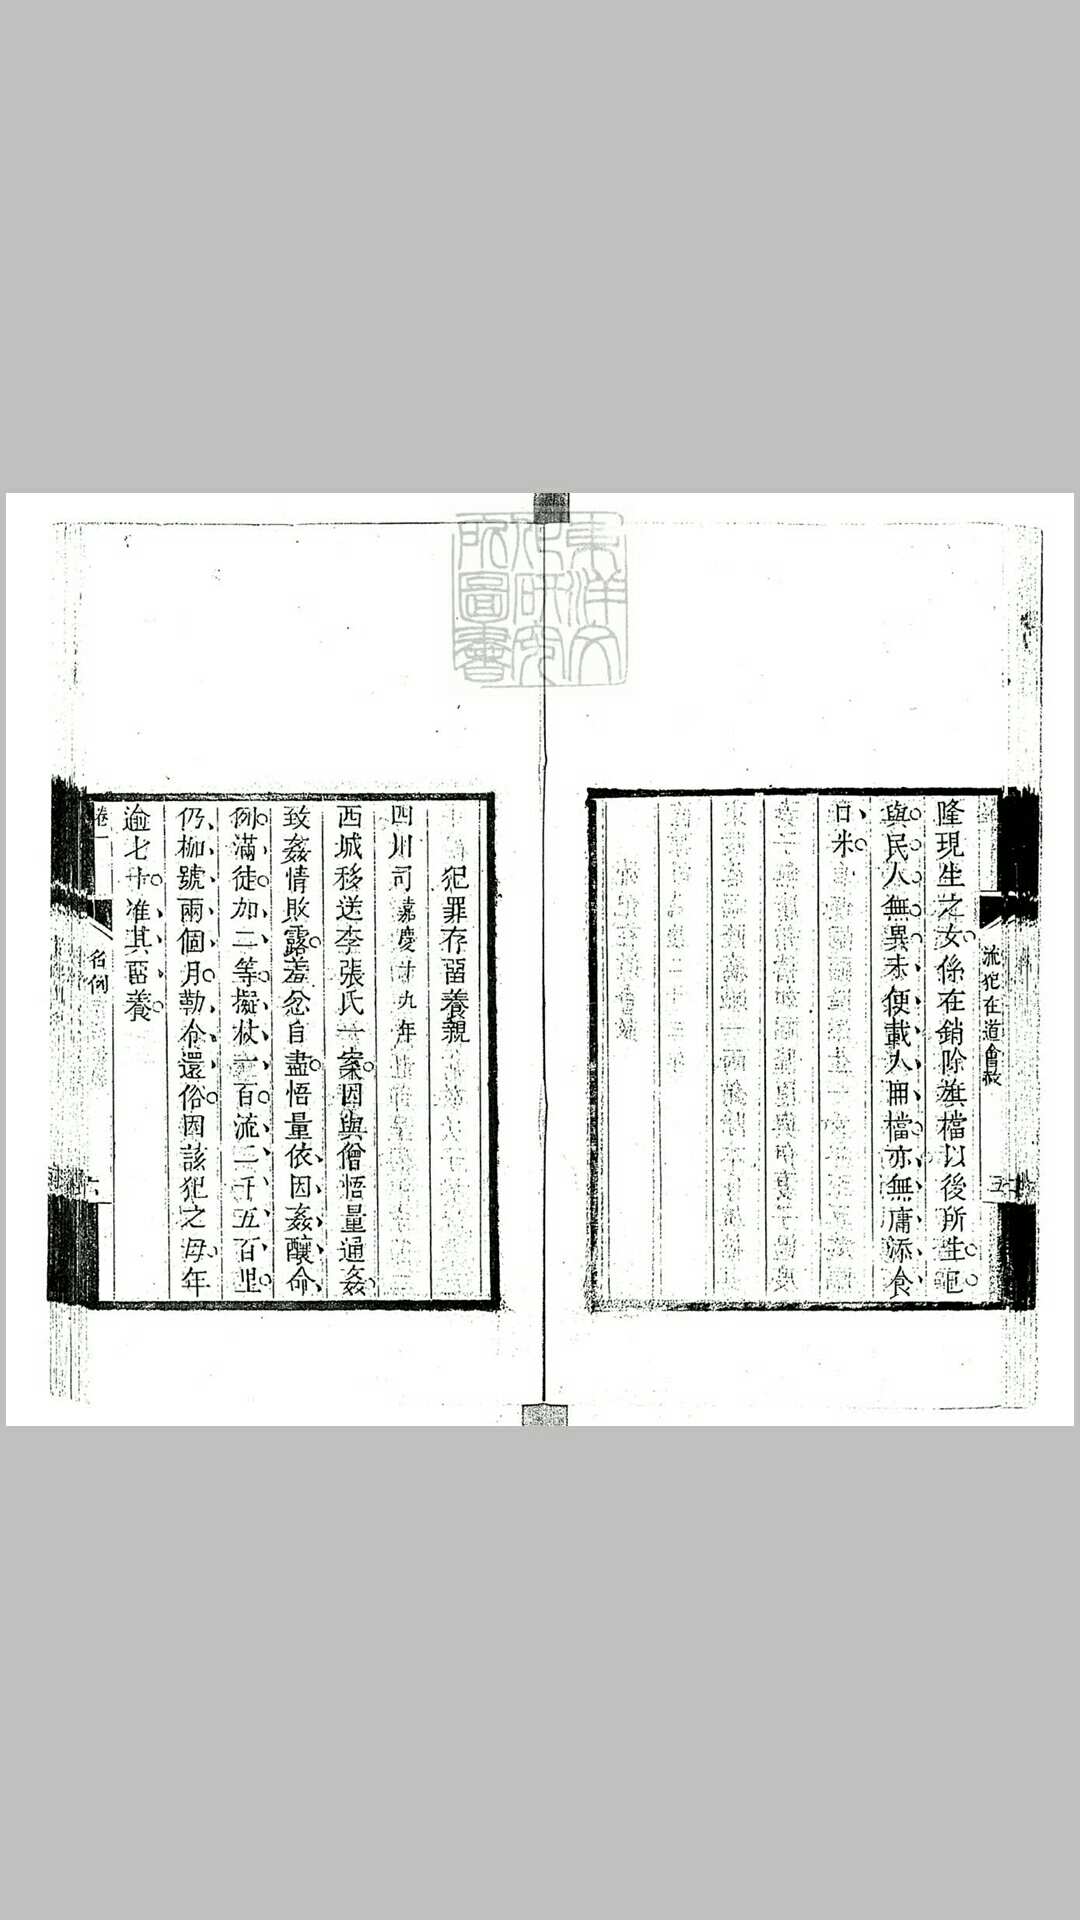 流犯在道會赦
五
隆現生之女係在銷除旗檔以後所生已
與民人無異未便載入冊檔亦無庸添食
口米
犯罪存畱養親
四川司嘉慶廿九年
西城移送李張氏一案因與僧悟量通姦
致姦情敗露羞忿自盡悟量依因姦釀命
例滿徒加二等擬杖一百流二千五百里
仍枷號兩個月勒令還俗因該犯之母年
逾七十准其畱養
卷一
名例
六
東洋文
化研究
所圖書